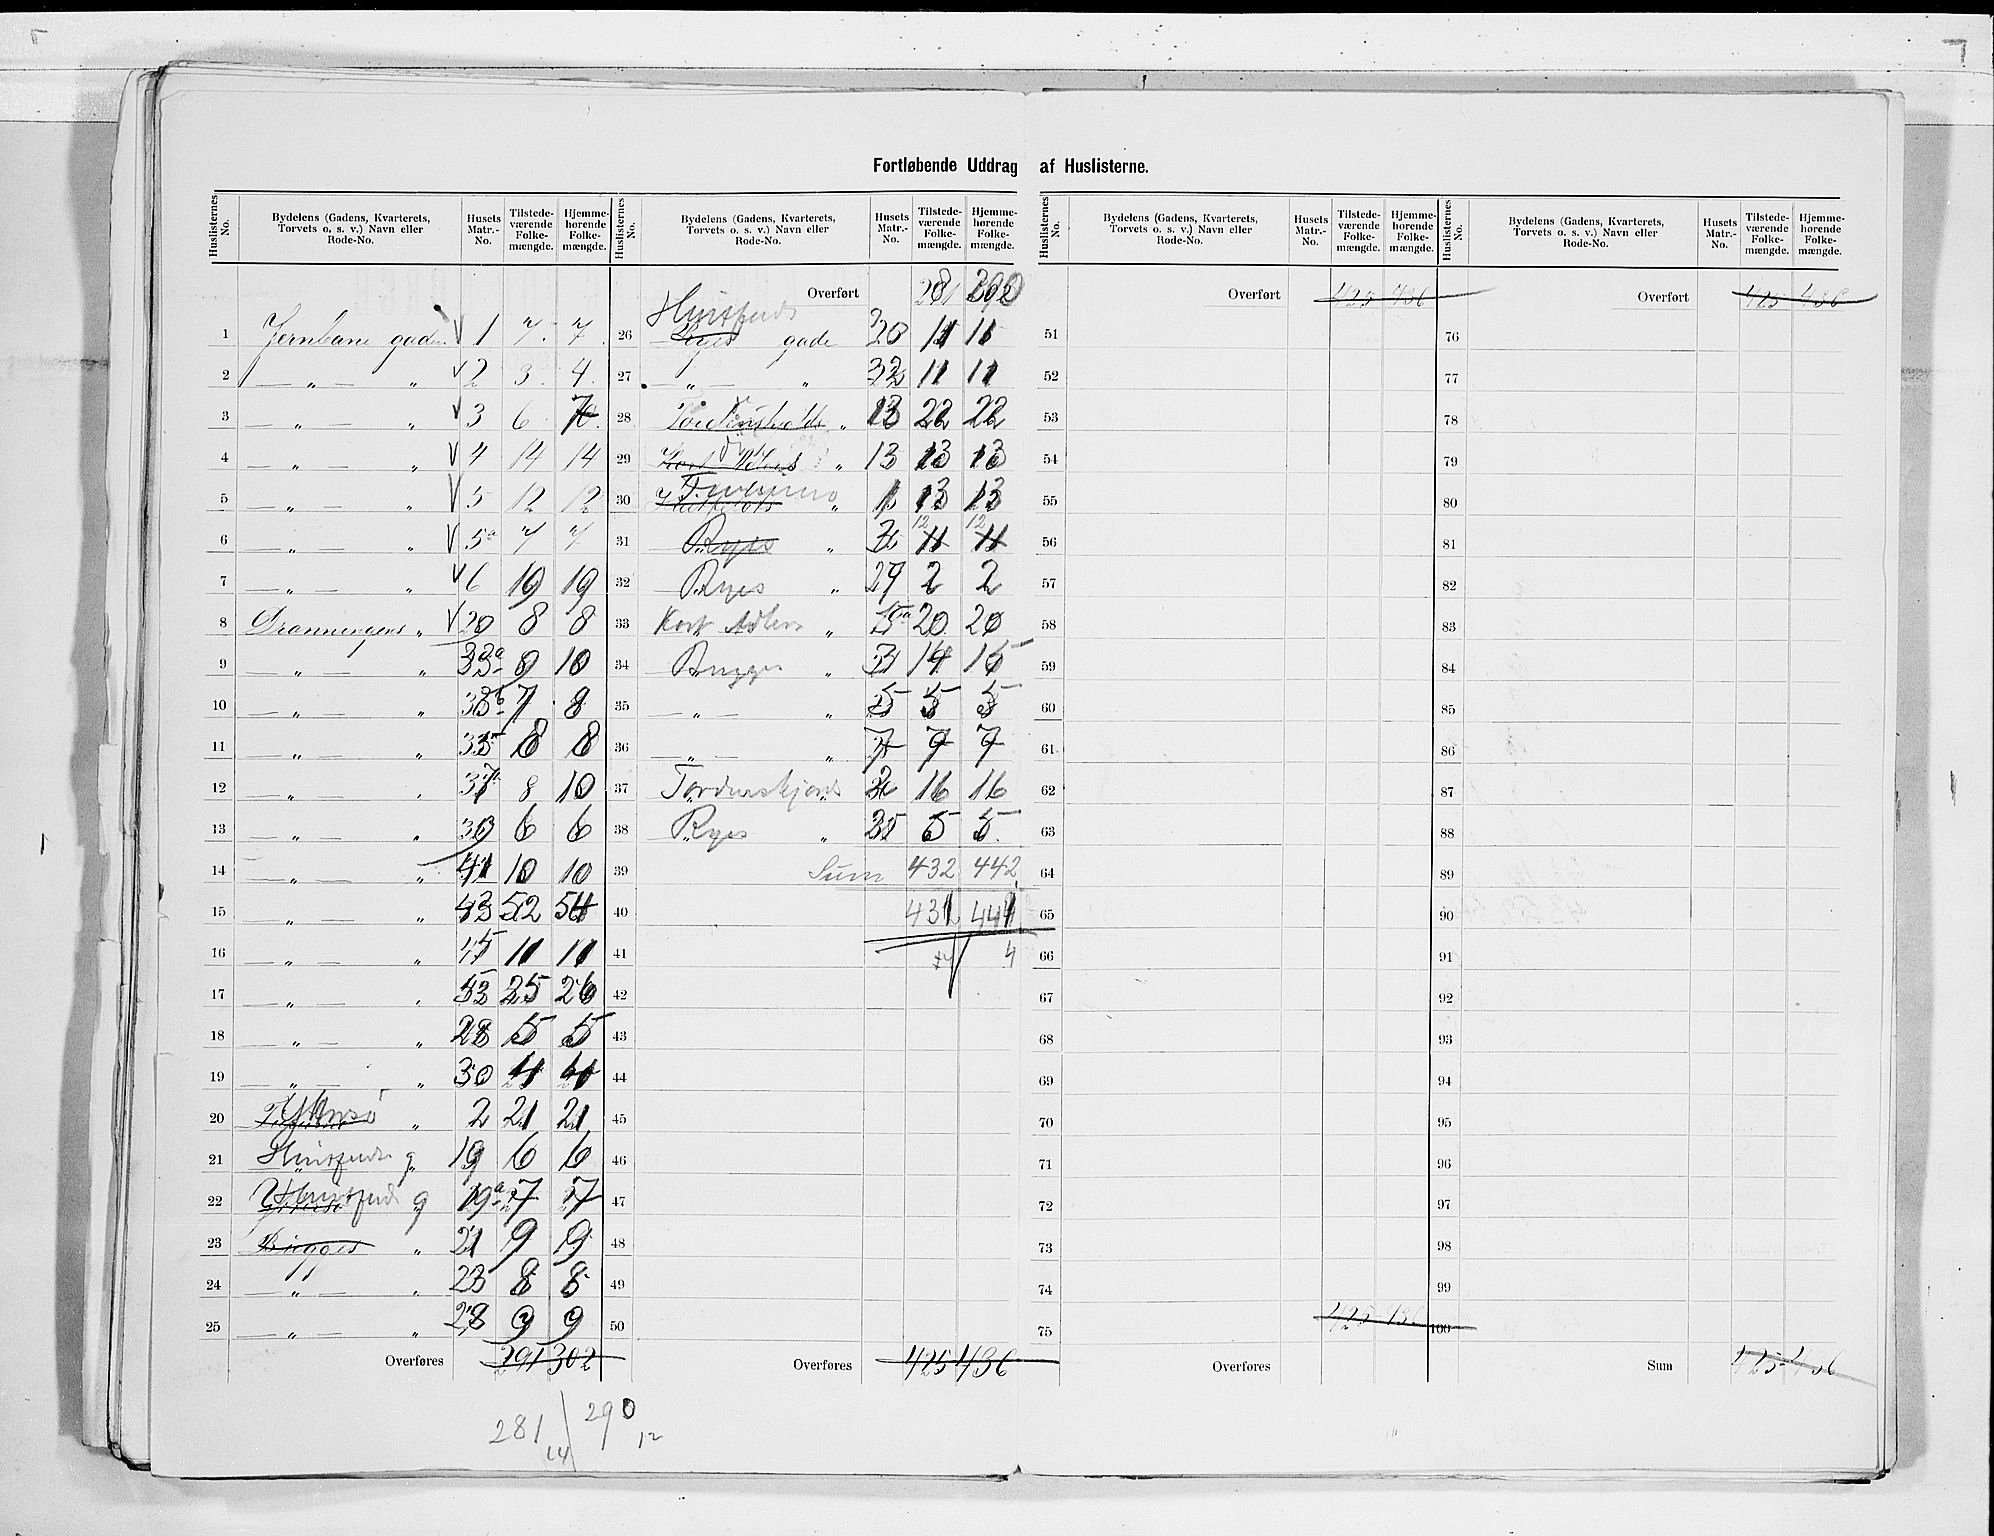 Fortløbende Uddrag af Huslisterne.
Huslisternes No. Bydelens (Gadens, Kvarterets, Torvets o. s. v.) Navn eller Rode-No. Husets Matr.-No. Tilstedeværende Folkemængde. Hjemmehørende Folkemængde.
1 Jernbane gaden 1 7 7
2 — „ — „ 2 3 4
3 — „ — „ 3 6 7
4 — „ — „ 4 14 14
5 — „ — „ 5 12 12
6 — „ — „ 5a 7 7
7 — „ — „ 6 19 19
8 Dronningens „ 20 8 8
9 — „ — „ 33a 9 10
10 — „ — „ 33b 7 8
11 — „ — „ 35 8 8
12 — „ — „ 37a 8 10
13 — „ — „ 39 6 6
14 — „ — „ 41 10 10
15 — „ — „ 43 52 54
16 — „ — „ 45 11 11
17 — „ — „ 53 25 26
18 — „ — „ 28 5 5
19 — „ — „ 30 4 4
20 Yttersø „ 2 21 21
21 Huitfeldts g 19 6 6
22 Huitfeldts g 19a 7 7
23 Bugges „ 21 9 9
24 — „ — „ 23 8 8
25 — „ — „ 28 9 9
Overføres 291 302
281 290
14 12
Huslisternes No. Bydelens (Gadens, Kvarterets, Torvets o. s. v.) Navn eller Rode-No. Husets Matr.-No. Tilstedeværende Folkemængde. Hjemmehørende Folkemængde.
Overført 281 290
Huitfeldts
26 Ryes gade 20 11 11
27 — „ — „ 32 11 11
28 Tordenskjolds „ 13 22 22
29 Kort Adlers „ 13 13 13
30 Huitfeldts „ 1 13 13
12 12
31 Ryes „ 3 11 11
32 Ryes „ 29 2 2
33 Kort Adlers „ 15a 20 20
34 Bugges „ 3 14 15
35 — „ — „ 5 5 5
36 — „ — „ 7 7 7
37 Tordenskjolds „ 2 16 16
38 Ryes „ 35 5 5
39 Sum 432 442
40 431 441
41 4
42
43
44
45
46
47
48
49
50
Overføres 425 436
Huslisternes No. Bydelens (Gadens, Kvarterets, Torvets o. s. v.) Navn eller Rode-No. Husets Matr.-No. Tilstedeværende Folkemængde. Hjemmehørende Folkemængde.
Overført 425 436
51
52
53
54
55
56
57
58
59
60
61
62
63
64
65
66
67
68
69
70
71
72
73
74
75 425 436
Overføres
Huslisternes No. Bydelens (Gadens, Kvarterets, Torvets o. s. v.) Navn eller Rode-No. Husets Matr.-No. Tilstedeværende Folkemængde. Hjemmehørende Folkemængde.
Overført 425 436
76
77
78
79
80
81
82
83
84
85
86
87
88
89
90
91
92
93
94
95
96
97
98
99
100
Sum 425 436